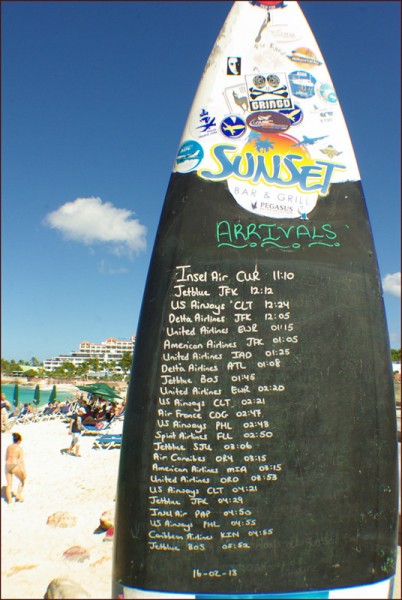 GRINGO
SUNSET
BAR & GRILL
PEGASUS
ARRIVALS
Insel Air CUR 11:10
Jetblue JFK 12:12
US Airways CLT 12:24
Delta Airlines JFK 12:05
United Airlines EWR 01:15
American Airlines JFK 01:05
United Airlines IAD 01:25
Delta Airlines ATL 01:08
Jetblue BOS 01:46
United Airlines EWR 02:20
US Airways CLT 02:21
Air France CDG 02:47
US Airways PHL 02:48
Spirit Airlines FLL 02:50
Jetblue SJU 03:06
Air Caraibes ORY 03:15
American Airlines MIA 03:15
United Airlines ORD 03:53
US Airways CLT 04:21
Jetblue JFK 04:29
Insel Air PAP 04:50
US Airways PHL 04:55
Caribbean Airlines KIN 04:55
Jetblue BOS 05:52
16-02-13